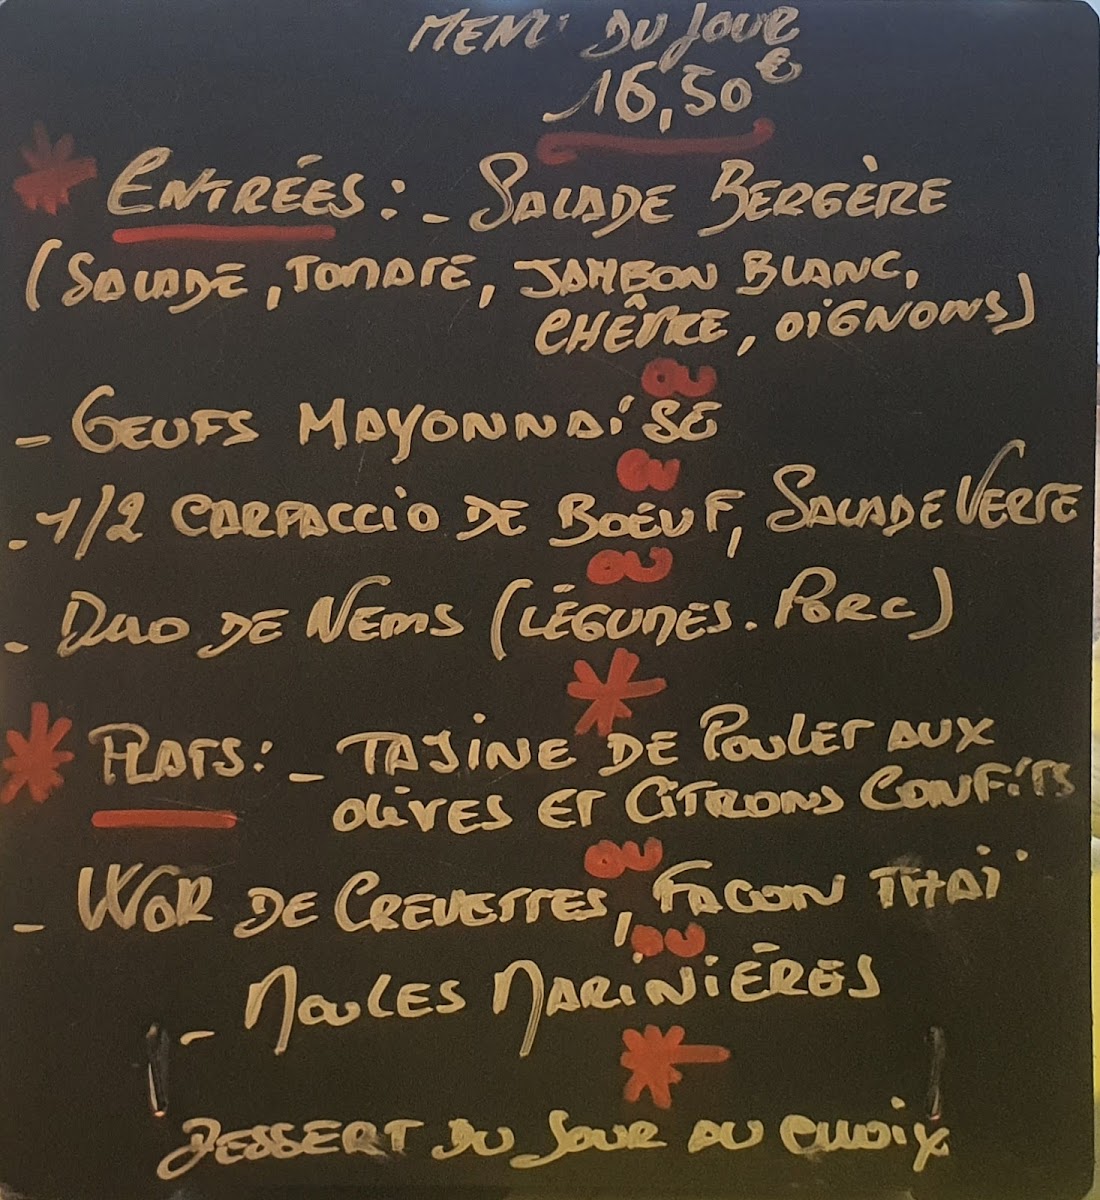 MENU DU JOUR
16,50€
ENTRÉES : - SALADE BERGÈRE
(SALADE, TOMATE, JAMBON BLANC,
CHÊVRE, OIGNONS)
OU
- OEUFS MAYONNAISE
OU
- 1/2 CARPACCIO DE BOEUF, SALADE VERTE
OU
- DUO DE NEMS (LÉGUMES. PORC)
PLATS : - TAJINE DE POULET AUX
OLIVES ET CITRONS CONFITS
OU
- WOK DE CREVETTES, FACON THAÏ
OU
- MOULES MARINIÈRES
DESSERT DU JOUR AU CHOIX